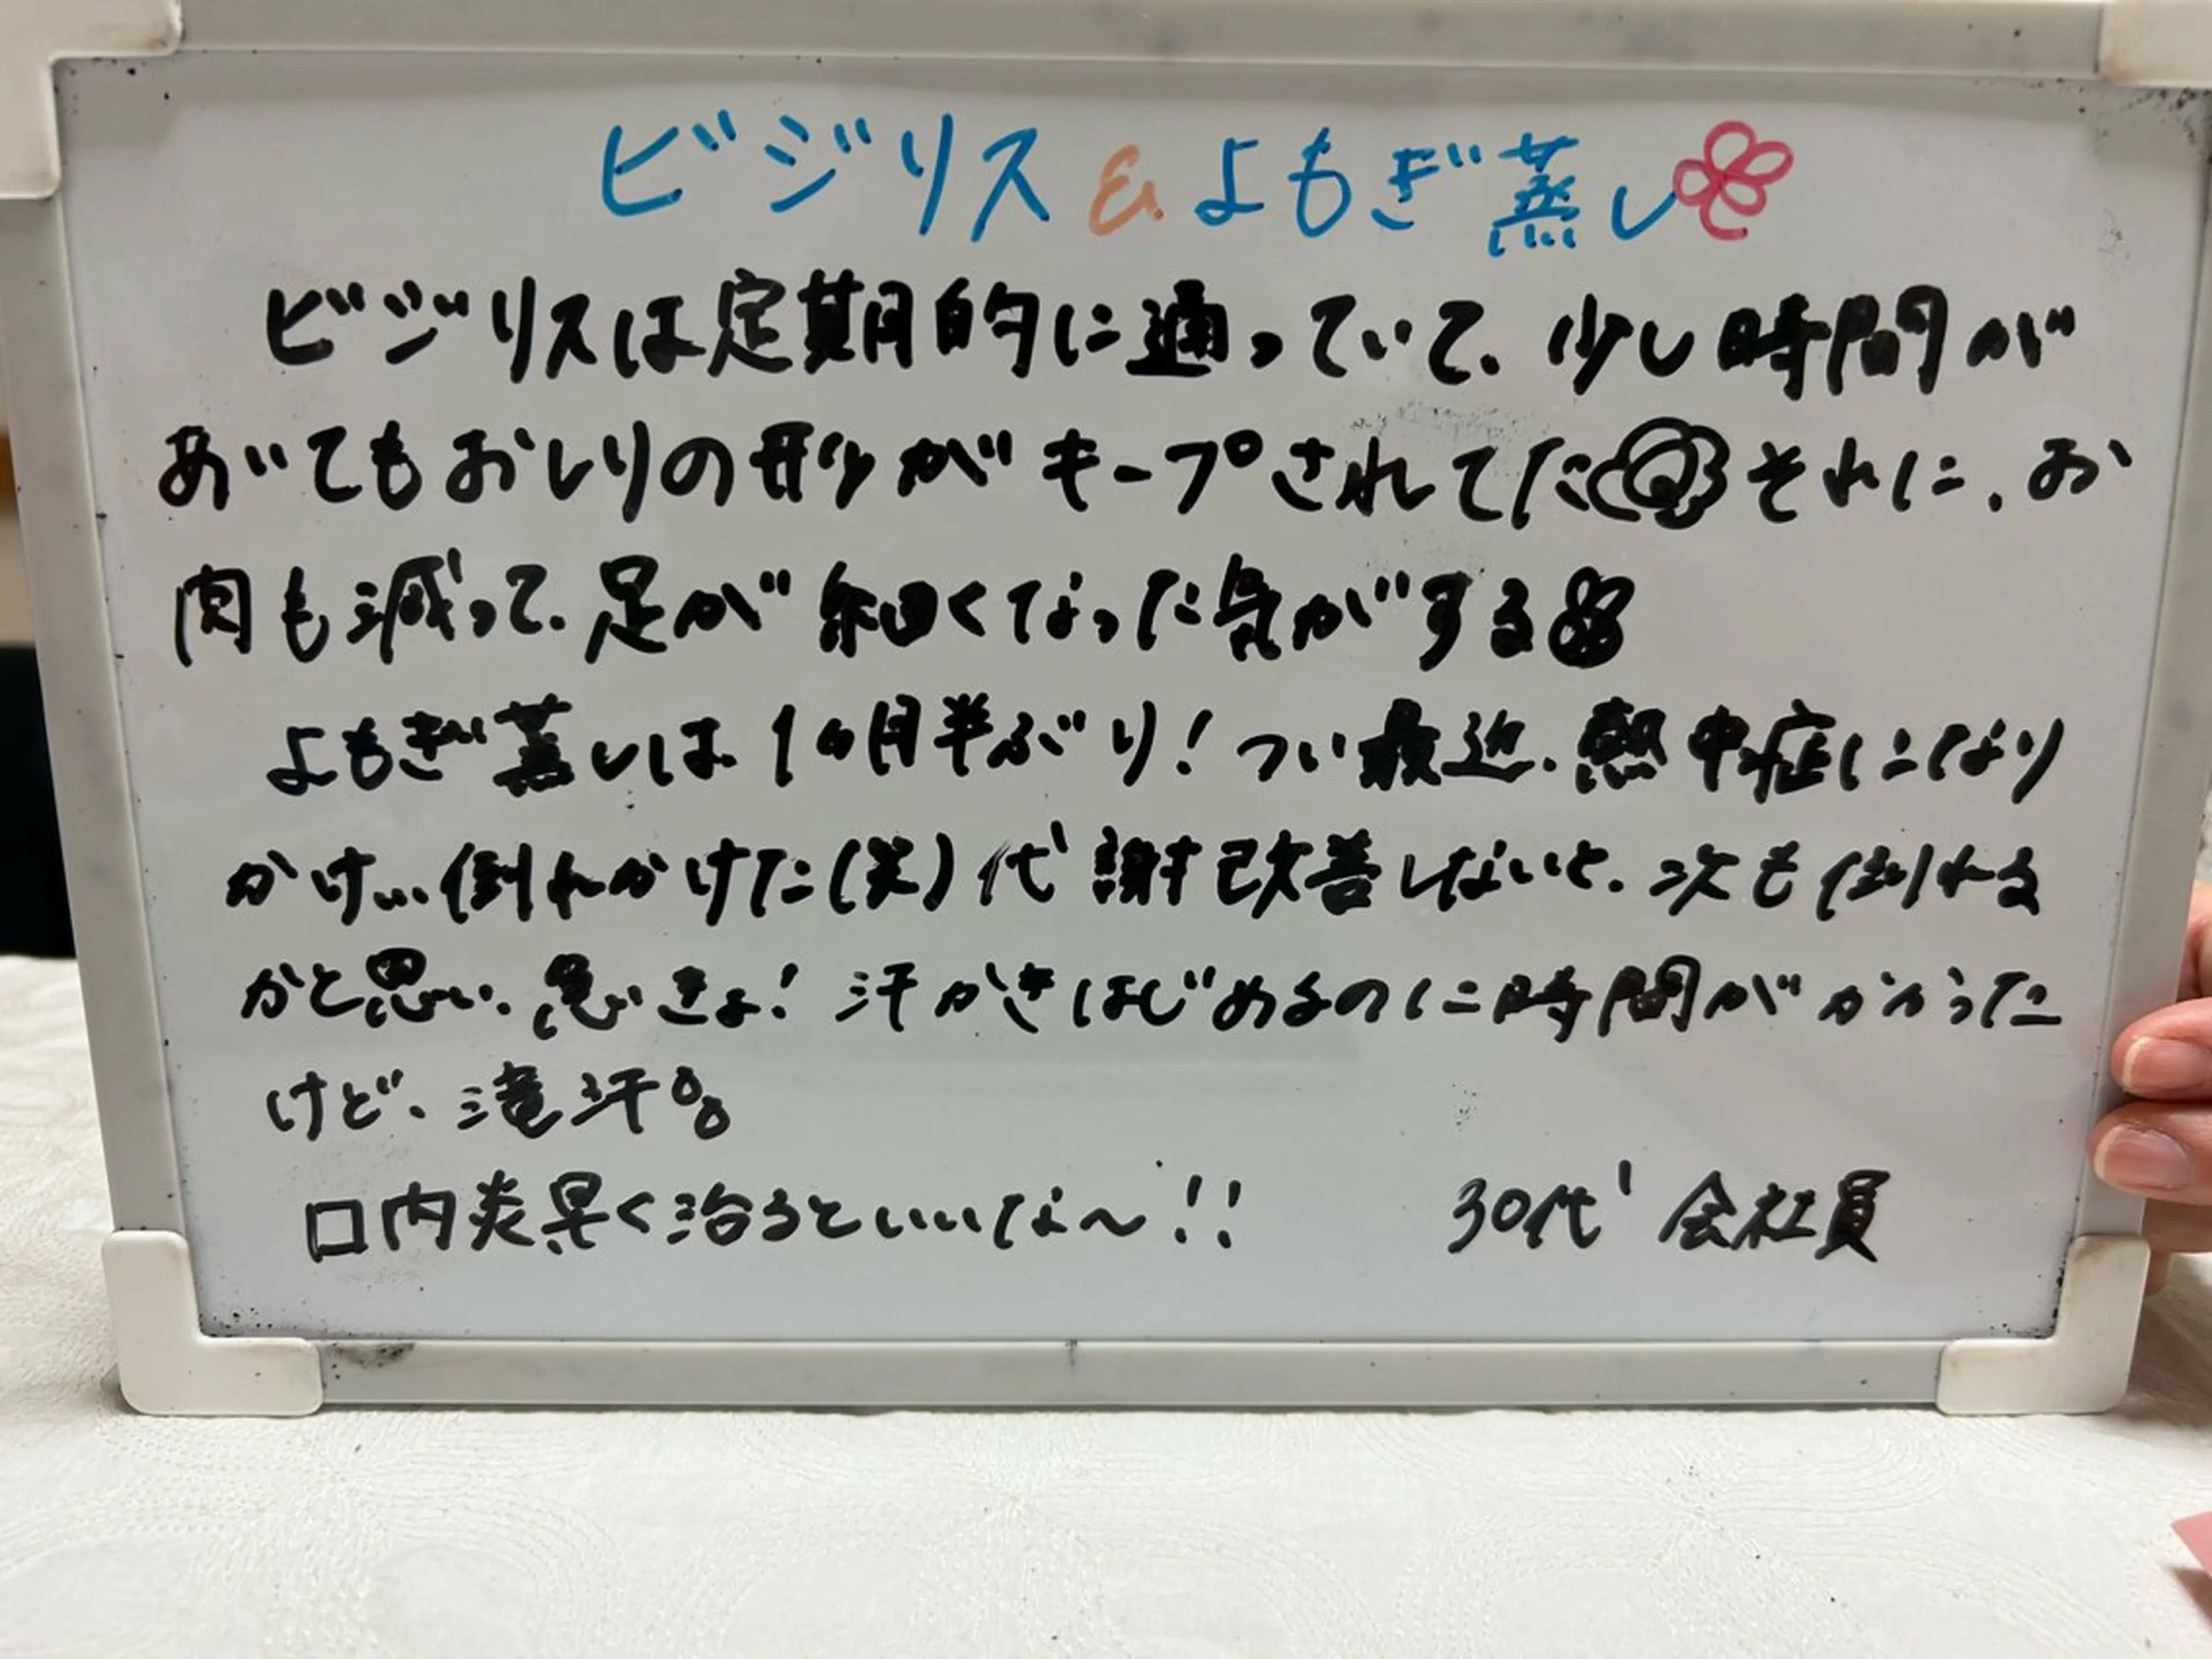 ビジリス & よもぎ蒸し
ビジリスは定期的に通っていて、少し時間が
あいてもおしりの形がキープされてた それに、お
肉も減って、足が細くなった気がする
よもぎ蒸しは、1ヶ月半ぶり!つい最近、熱中症になり
かけ…倒れかけた(笑)代謝改善しないと、次も倒れる
かと思い、急いきょ!汗かきはじめるのに時間がかかった
けど、滝汗
口内炎早く治るといいな〜!!
30代 会社員